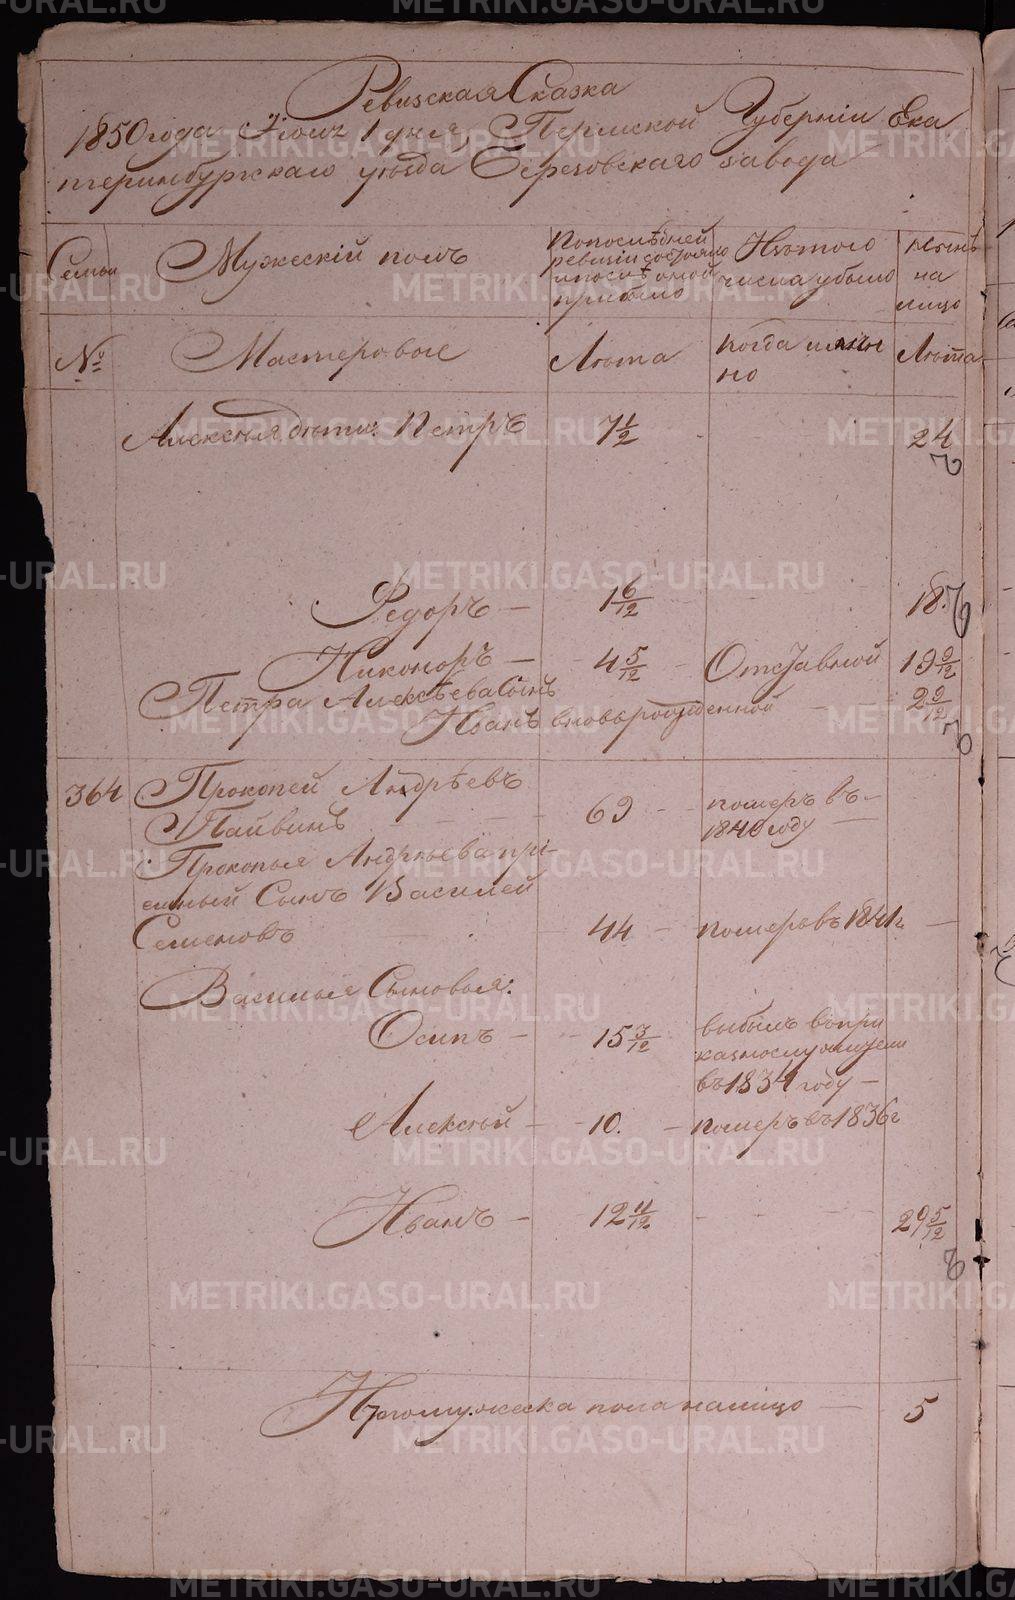 Ревизская Сказка
1850 года Июня 1 дня Пермской Губернiи Ека
теринбургскаго уѣзда Березовскаго завода
Семьи
Мужескiй полъ
По последней
ревизiи состояло
и после оной
прибыло
Изтого
числа убыло
ныне
на
лицо
№
Мастеровые
Лѣта
Когда имян
но
Лѣта
Алексѣя дѣти: Петръ 7 1/2 24
Федоръ 1 6/12 18.
Никоноръ 4 5/12 Отставной 19 9/12
Петра Алексѣева Сынъ 2 9/12
Иванъ вновьрожденной
364 Прокопей Андрѣевъ
Пайвинъ 69 померъ въ
1840 году
Прокопья Андрѣева прi
емный Сынъ Василей
Семеновъ 44 померъ въ 1841 г.
Василья Сыновья:
Осипъ 15 3/12 выбылъ в при
казнослужители
въ 1834 году
Алексѣй 10. померъ въ 1836 г
Иванъ 12 11/12 29 5/12
Итого мужеска пола налицо 5
METRIKI.GASO-URAL.RU